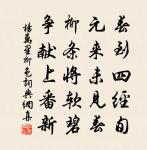 春到四經旬
元來未見春
柳条將軟碧
爭献上番新
楊萬里柳色詞典網集